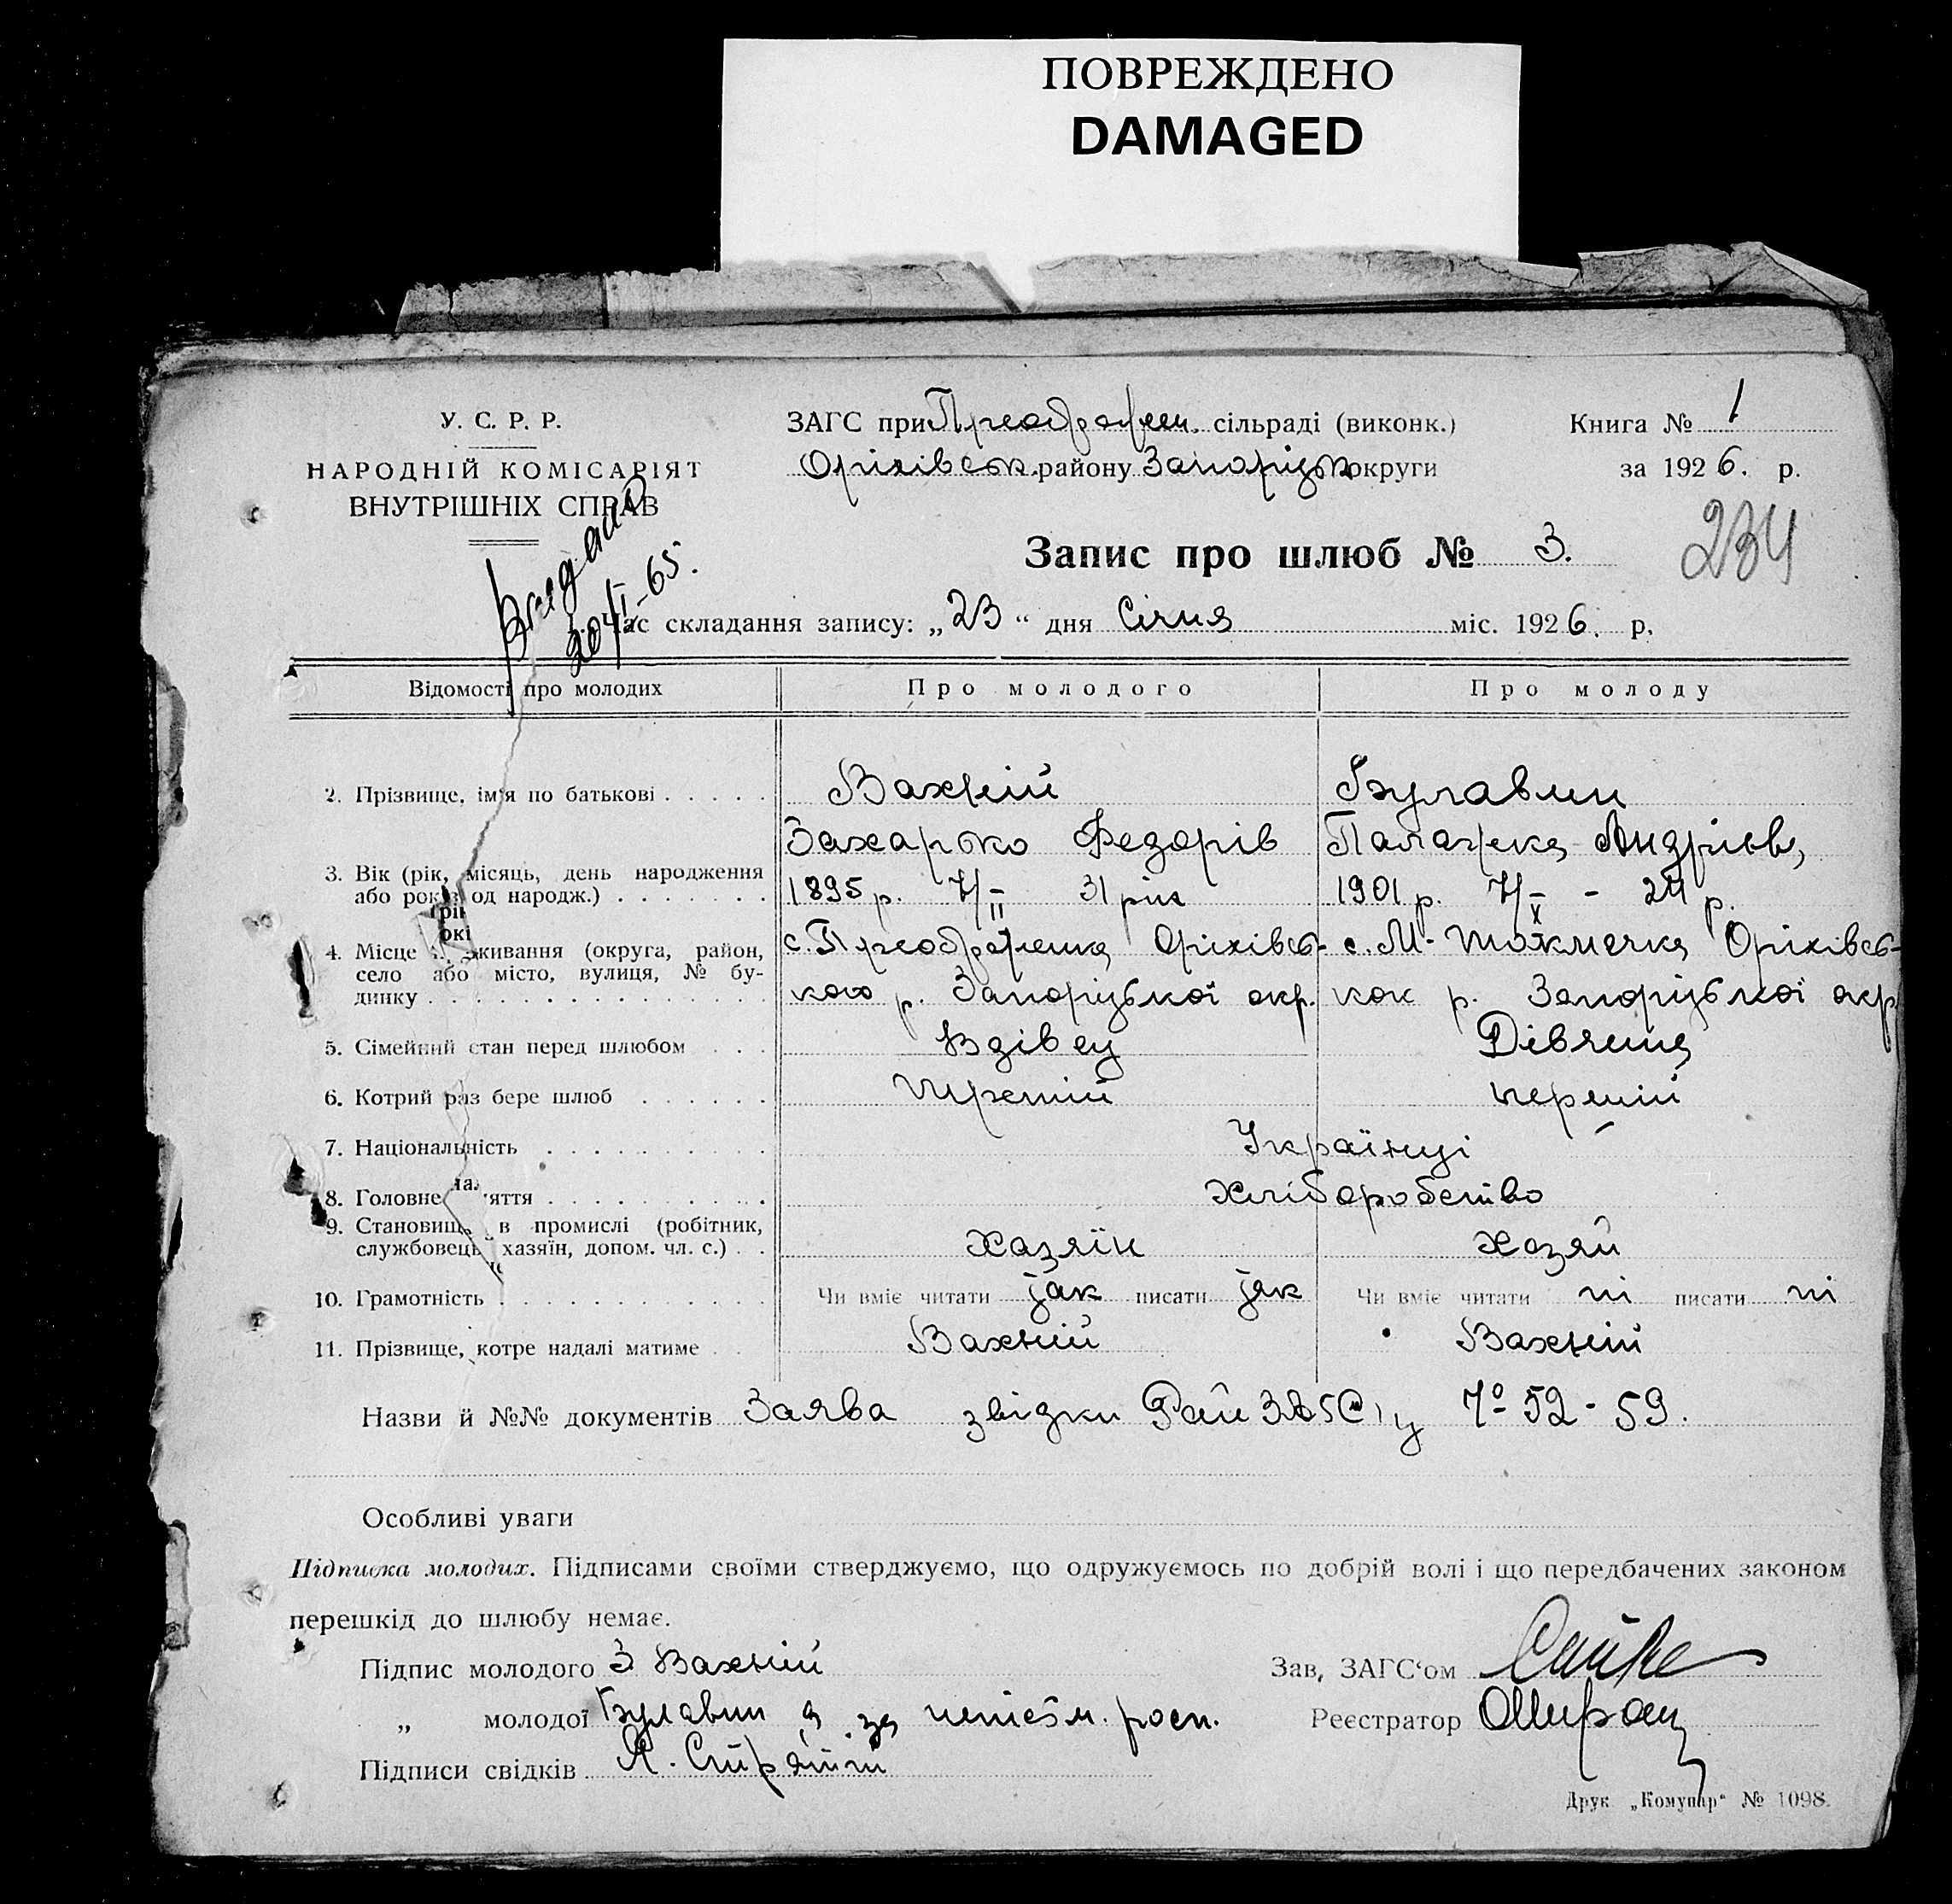 ПОВРЕЖДЕНО
DAMAGED
У. С. Р. Р.
НАРОДНІЙ КОМІСАРІЯТ
ВНУТРІШНІХ СПРАВ
ЗАГС при Преображен. сільраді (виконк.)
Оріхівськ. району Запоріжськ округи
Книга № 1
за 1926. р.
234
Запис про шлюб № 3.
20/I-65.
Час складання запису: „23“ дня Січня міс. 1926. р.
Відомості про молодих Про молодого Про молоду
2. Прізвище, ім'я по батькові Вахній Булавин
Захарько Федорів Палажка Андрієв
3. Вік (рік, місяць, день народження
або років од народж.) 1895 р. 7/II 31 рік 1901 р. 7/X - 24 р.
4. Місце проживання (округа, район,
село або місто, вулиця, № бу-
динку
с. Преображенка Оріхівсь- с. М-Токмачка Оріхівсь-
кого р. Запоріжської окр. ког р. Запоріжської окр
5. Сімейний стан перед шлюбом Вдівец Дівчина
6. Котрий раз бере шлюб третій перший
7. Національність Українці
8. Головне заняття Хліборобство
9. Становище в промислі (робітник,
службовець, хазяїн, допом. чл. с.) Хазяїн Хазяй
10. Грамотність Чи вміє читати так писати так Чи вміє читати ні писати ні
11. Прізвище, котре надалі матиме Вахній Вахній
Назви й №№ документів Заява звідки 52-59.
Особливі уваги
Підписка молодих. Підписами своїми стверджуємо, що одружуємось по добрій волі і що передбачених законом
перешкід до шлюбу немає.
Підпис молодого З Вахній
„ молодої Булавин а за росп.
Підписи свідків
Зав, ЗАГС'ом
Реєстратор
Друк „Комунар“ № 1098.